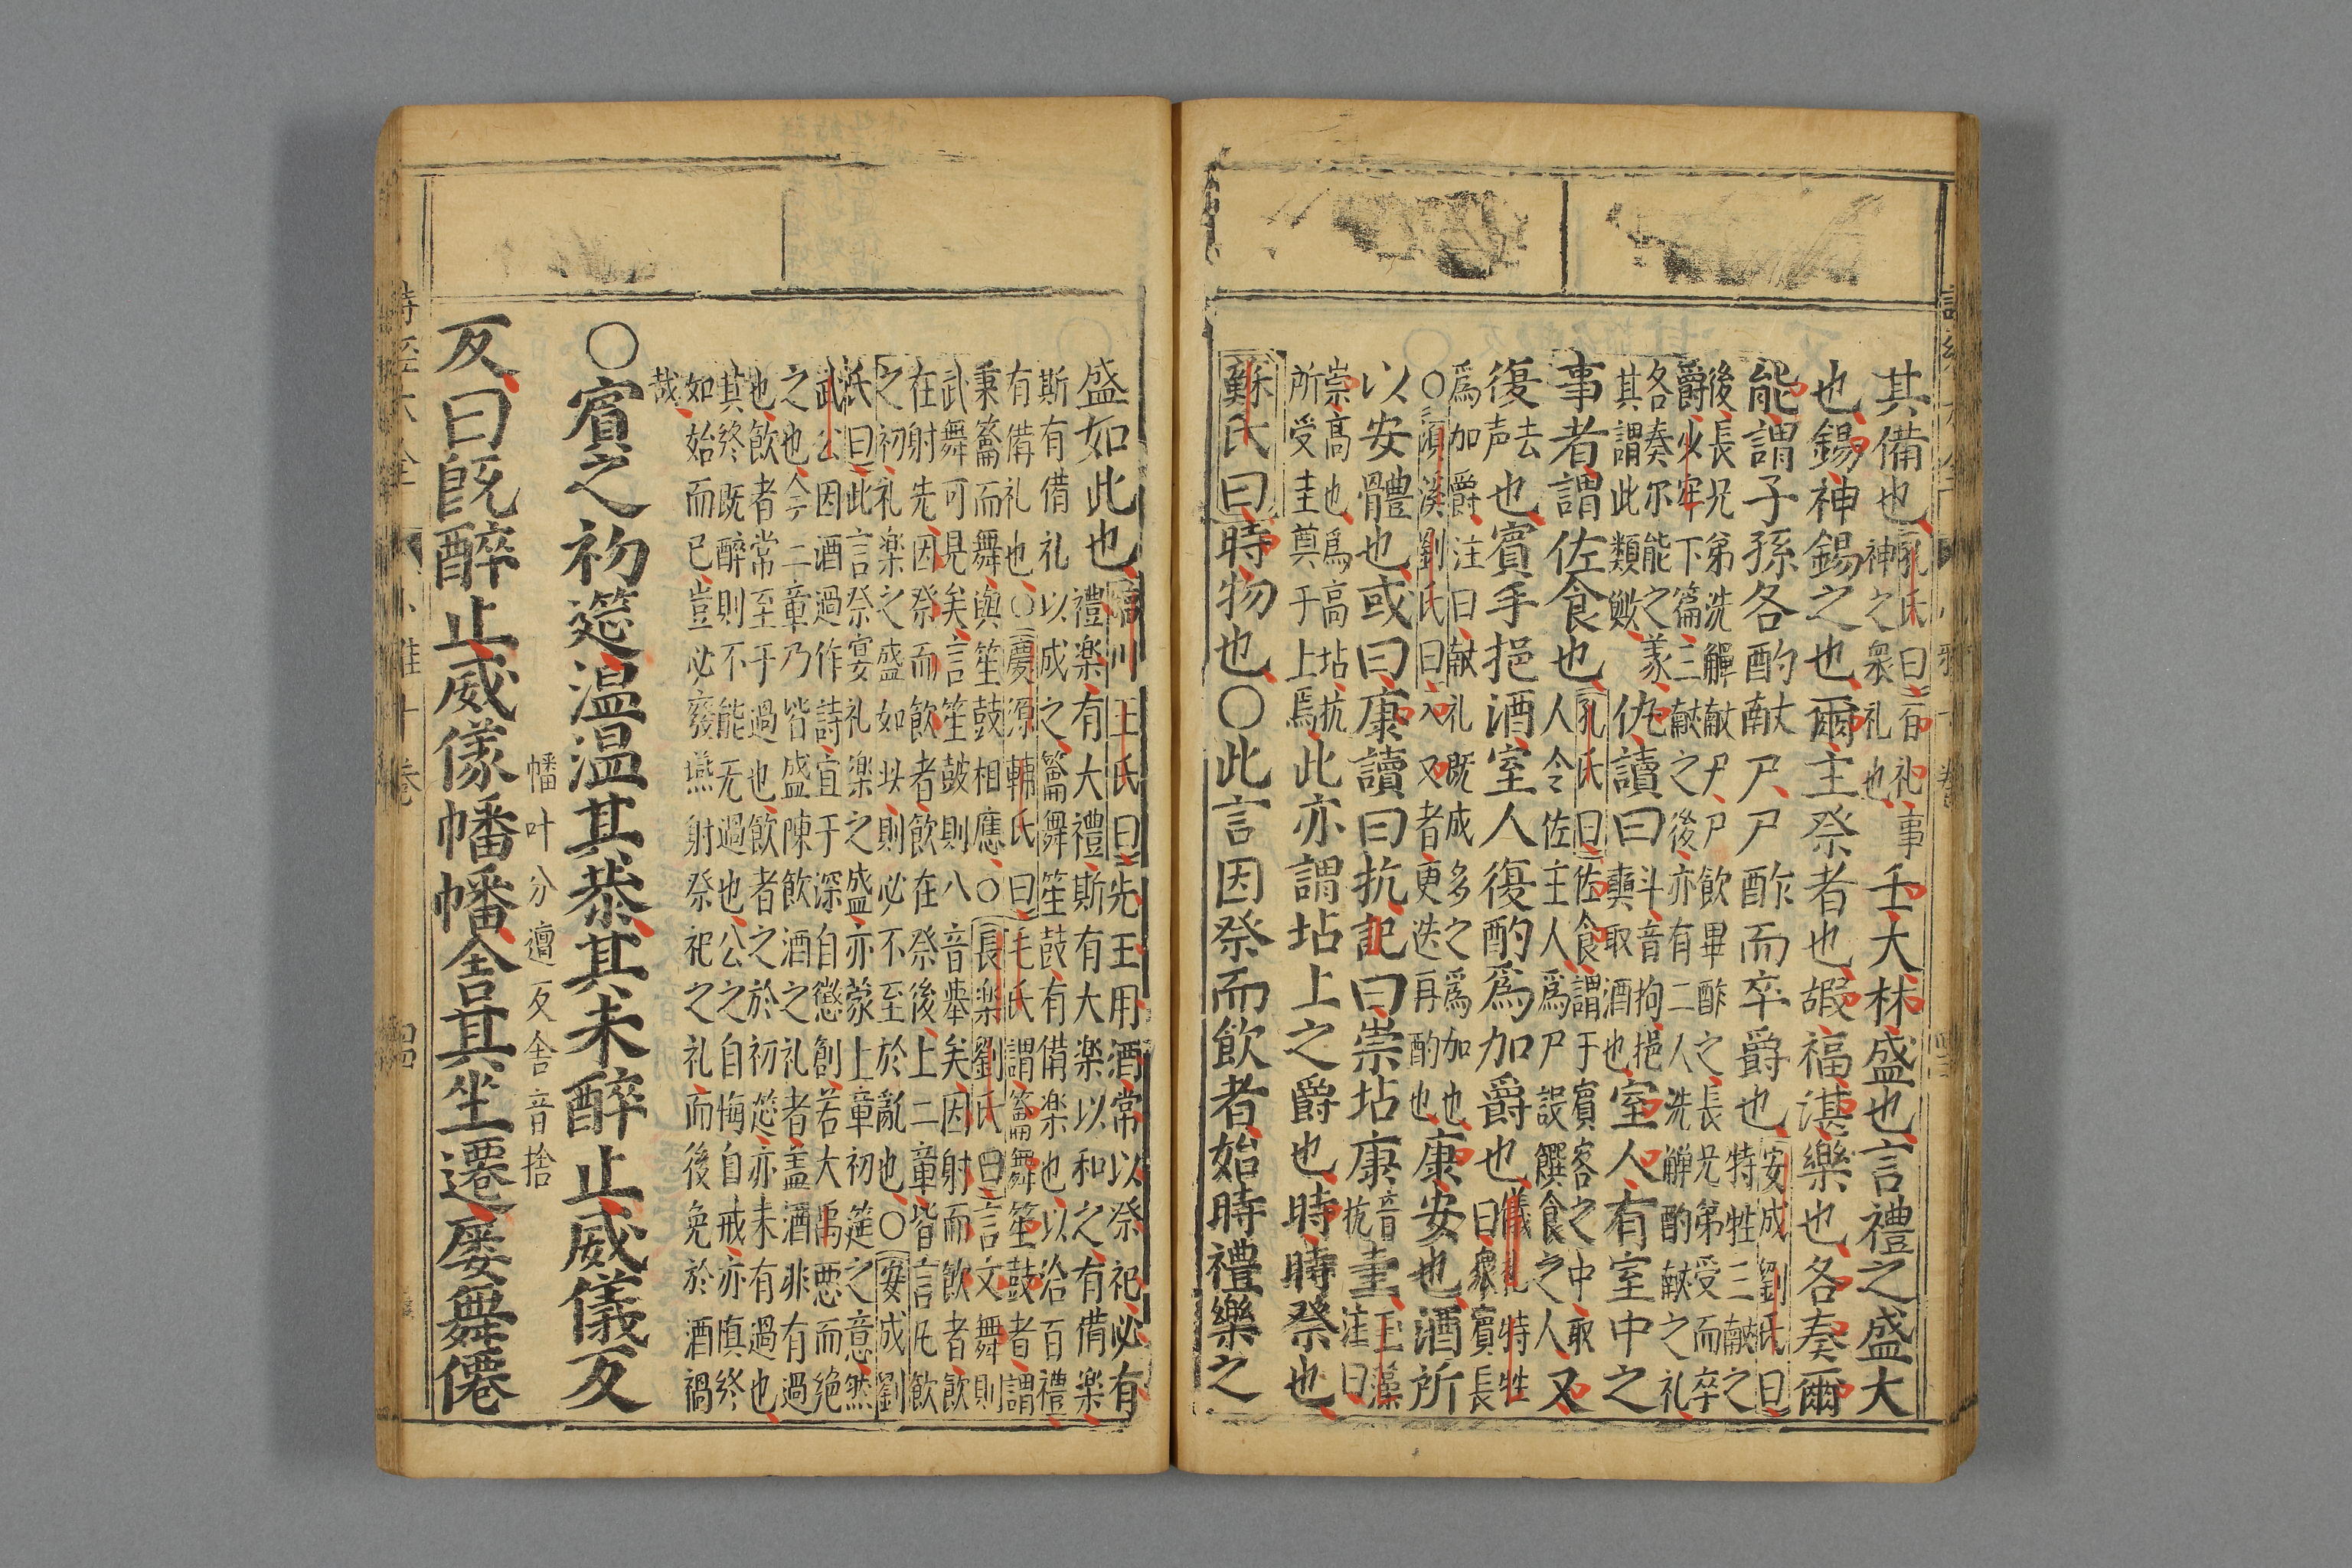 其備也孔氏曰百礼事神之衆礼也壬大林盛也言禮之盛大
也錫神錫之也爾主祭者也嘏福湛樂也各奏爾
能謂子孫各酌献尸尸酢而卒爵也安成劉氏曰特牲三献之
後長兄弟洗觶献尸尸飲畢酢之長兄弟受而卒
爵以牢下篇三献之後亦有二人洗觶酌献之礼
各奏尔能之義其謂此類歟仇讀曰斗音拘挹取酒也室人有室中之
事者謂佐食也孔氏曰佐食謂于賓客之中取人令佐主人爲尸設饌食之人又
復去声也賓手挹酒室人復酌爲加爵也儀礼特牲曰衆賓長
爲加爵注曰献礼既成多之爲加也
○須溪劉氏曰入又者更迭再酌也康安也酒所
以安體也或曰康讀曰抗記曰崇坫康音抗圭玉藻注曰
崇高也爲高坫抗所受圭奠于上焉此亦謂坫上之爵也時時祭也
蘇氏曰時物也○此言因祭而飲者始時禮樂之
盛如此也臨川王氏曰先王用酒常以祭祀必有
禮楽有大禮斯有大楽以和之有備楽
斯有備礼以成之籥舞笙鼓有備楽也以洽百禮
有備礼也○慶源輔氏曰毛氏謂籥舞笙鼓者謂
秉籥而舞與笙鼓相應○長楽劉氏曰言文舞則
武舞可見矣言笙鼓則八音舉矣因射而飲者飲
在射先因祭而飲者飲在祭後上二章皆言凡飲
之初礼楽之盛如此則必不至於亂也○安成劉
氏曰此言祭宴礼楽之盛亦蒙上章初筵之意然
武公因酒過作詩宜于深自懲創若大禹惡而絶
之也今二章乃皆盛陳飲酒之礼者盖酒非有過
也飲者常至于過也飲者之於初筵亦未有過也
其終既醉則不能无過也公之自悔自戒亦慎終
如始而已豈必廢燕射祭祀之礼而後免於酒禍
哉
○賓之初筵温温其恭其未醉止威儀反
反曰旣醉止威儀幡幡幡叶分邅反舍音捨舍其坐遷屡舞僊